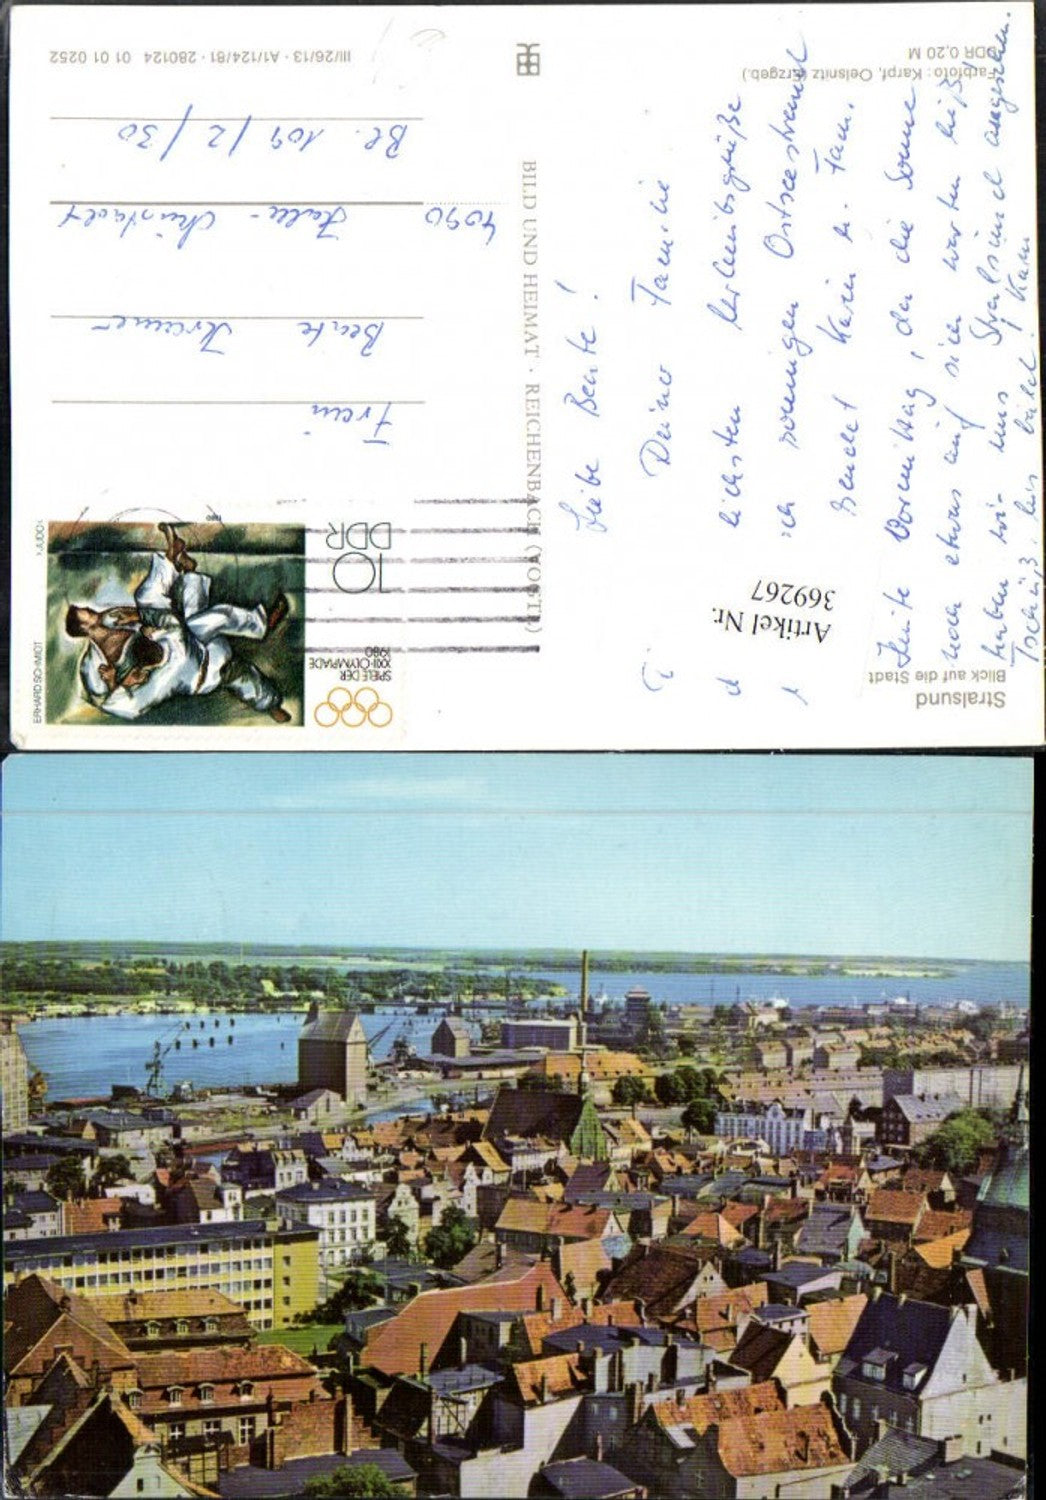 Stralsund
Blick auf die Stadt
Artikel Nr.
369267
Farbfoto: Karpf, Oelsnitz (Erzgeb.)
DDR 0,20 M
III/26/13 · A1/124/81 · 280124 01 01 0252
BILD UND HEIMAT · REICHENBACH (VOGTL)
SPIELE DER
XXII·OLYMPIADE
1980
10
DDR
ERHARD SCHMIDT
JUDO
1980
Liebe Beate!
Deine Familie
herzlichsten Urlaubsgrüße
sonnigen Ostseestrand
Karin u. Fam.
Heute Vormittag, da die Sonne
noch etwas auf sich warten ließ
haben wir uns Stralsund angesehen.
Tschüß, bis bald! Karin
Frau
Beate Kramer
4090 Halle-Neustadt
Bl. 109/2/30